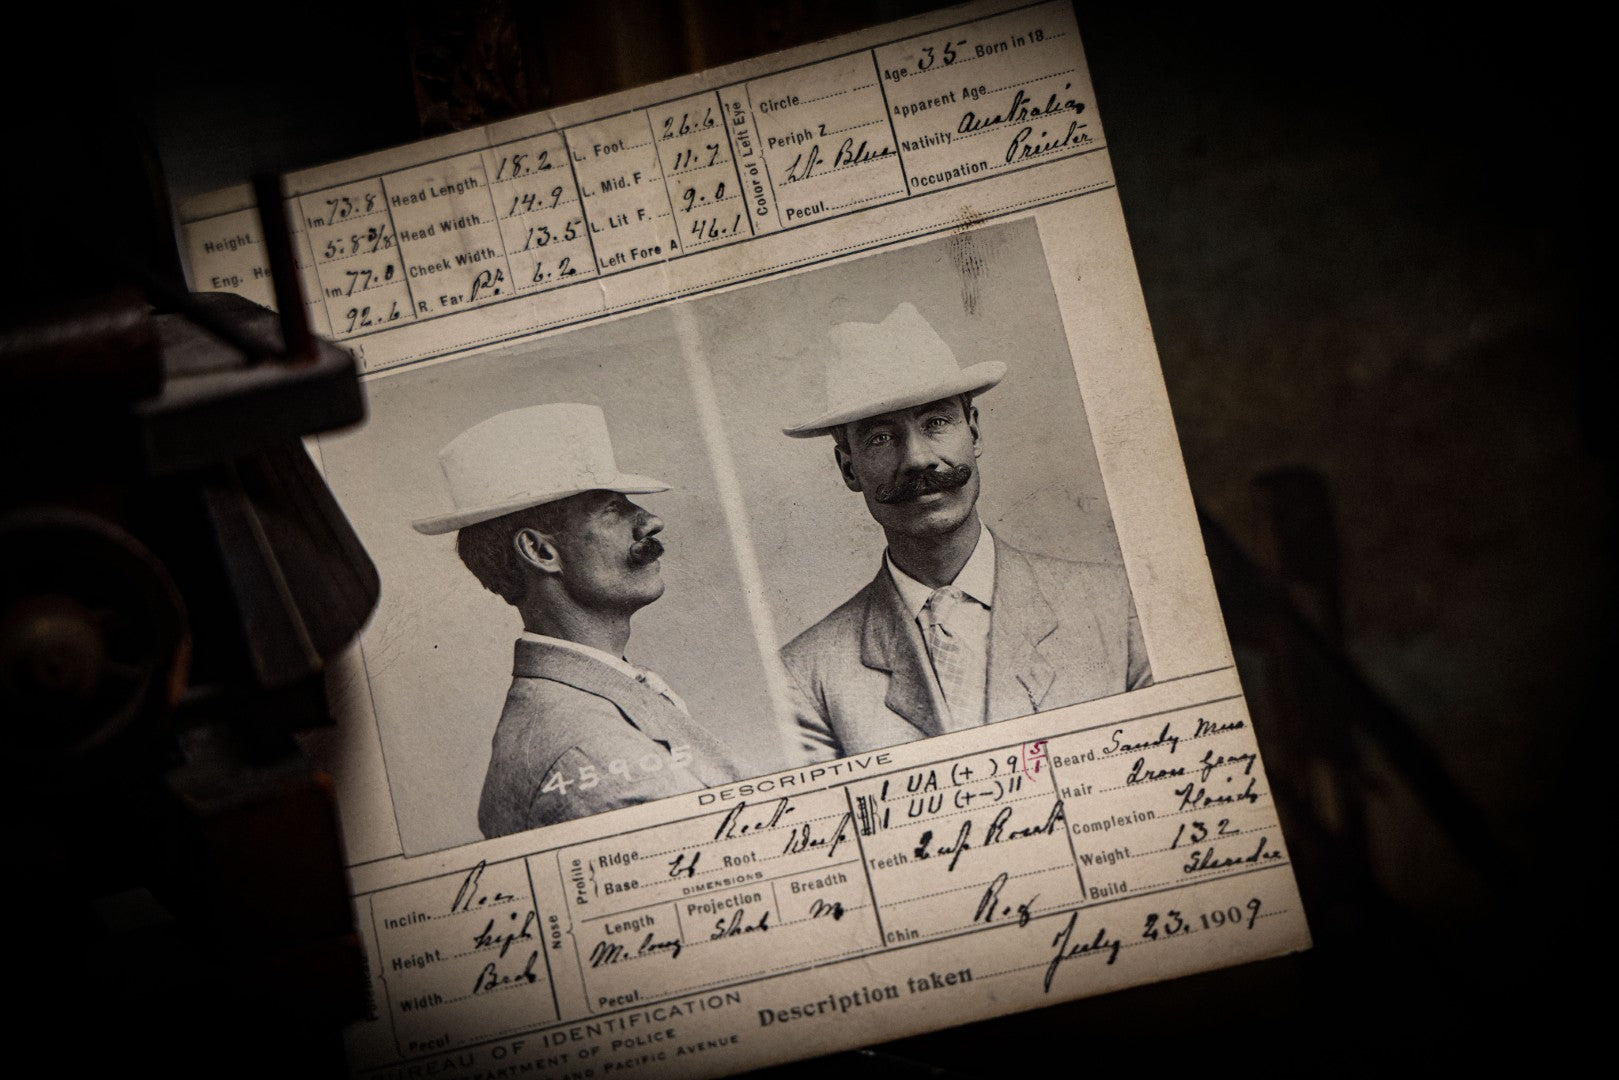 Height
1m 73.8
Head Length 18.2
L. Foot 26.6
Color of Left Eye
Circle
Age 35 Born in 18
Eng. He
5.8 3/8
Head Width 14.9
L. Mid. F 11.7
Periph Z
Apparent Age
1m 77.0
Cheek Width 13.5
L. Lit F. 9.0
Lt Blue
Nativity Australian
92.6
R. Ear Rt 6.2
Left Fore A 46.1
Pecul.
Occupation Printer
45905
DESCRIPTIVE
Inclin. Rec
Height high
Width Brod
Pecul
Nose
Profile
Ridge Rect
Base El Root Deep
DIMENSIONS
Length Projection Breadth
M. long Shal M
Pecul.
1 UA (+ ) 9 5/1
1 UU (+-) 11
Teeth 2 up
Chin Reg
Beard Sandy Mus
Hair Iron Gray
Complexion Florid
Weight 132
Build Slender
BUREAU OF IDENTIFICATION
PARTMENT OF POLICE
AND PACIFIC AVENUE
Description taken July 23, 1909